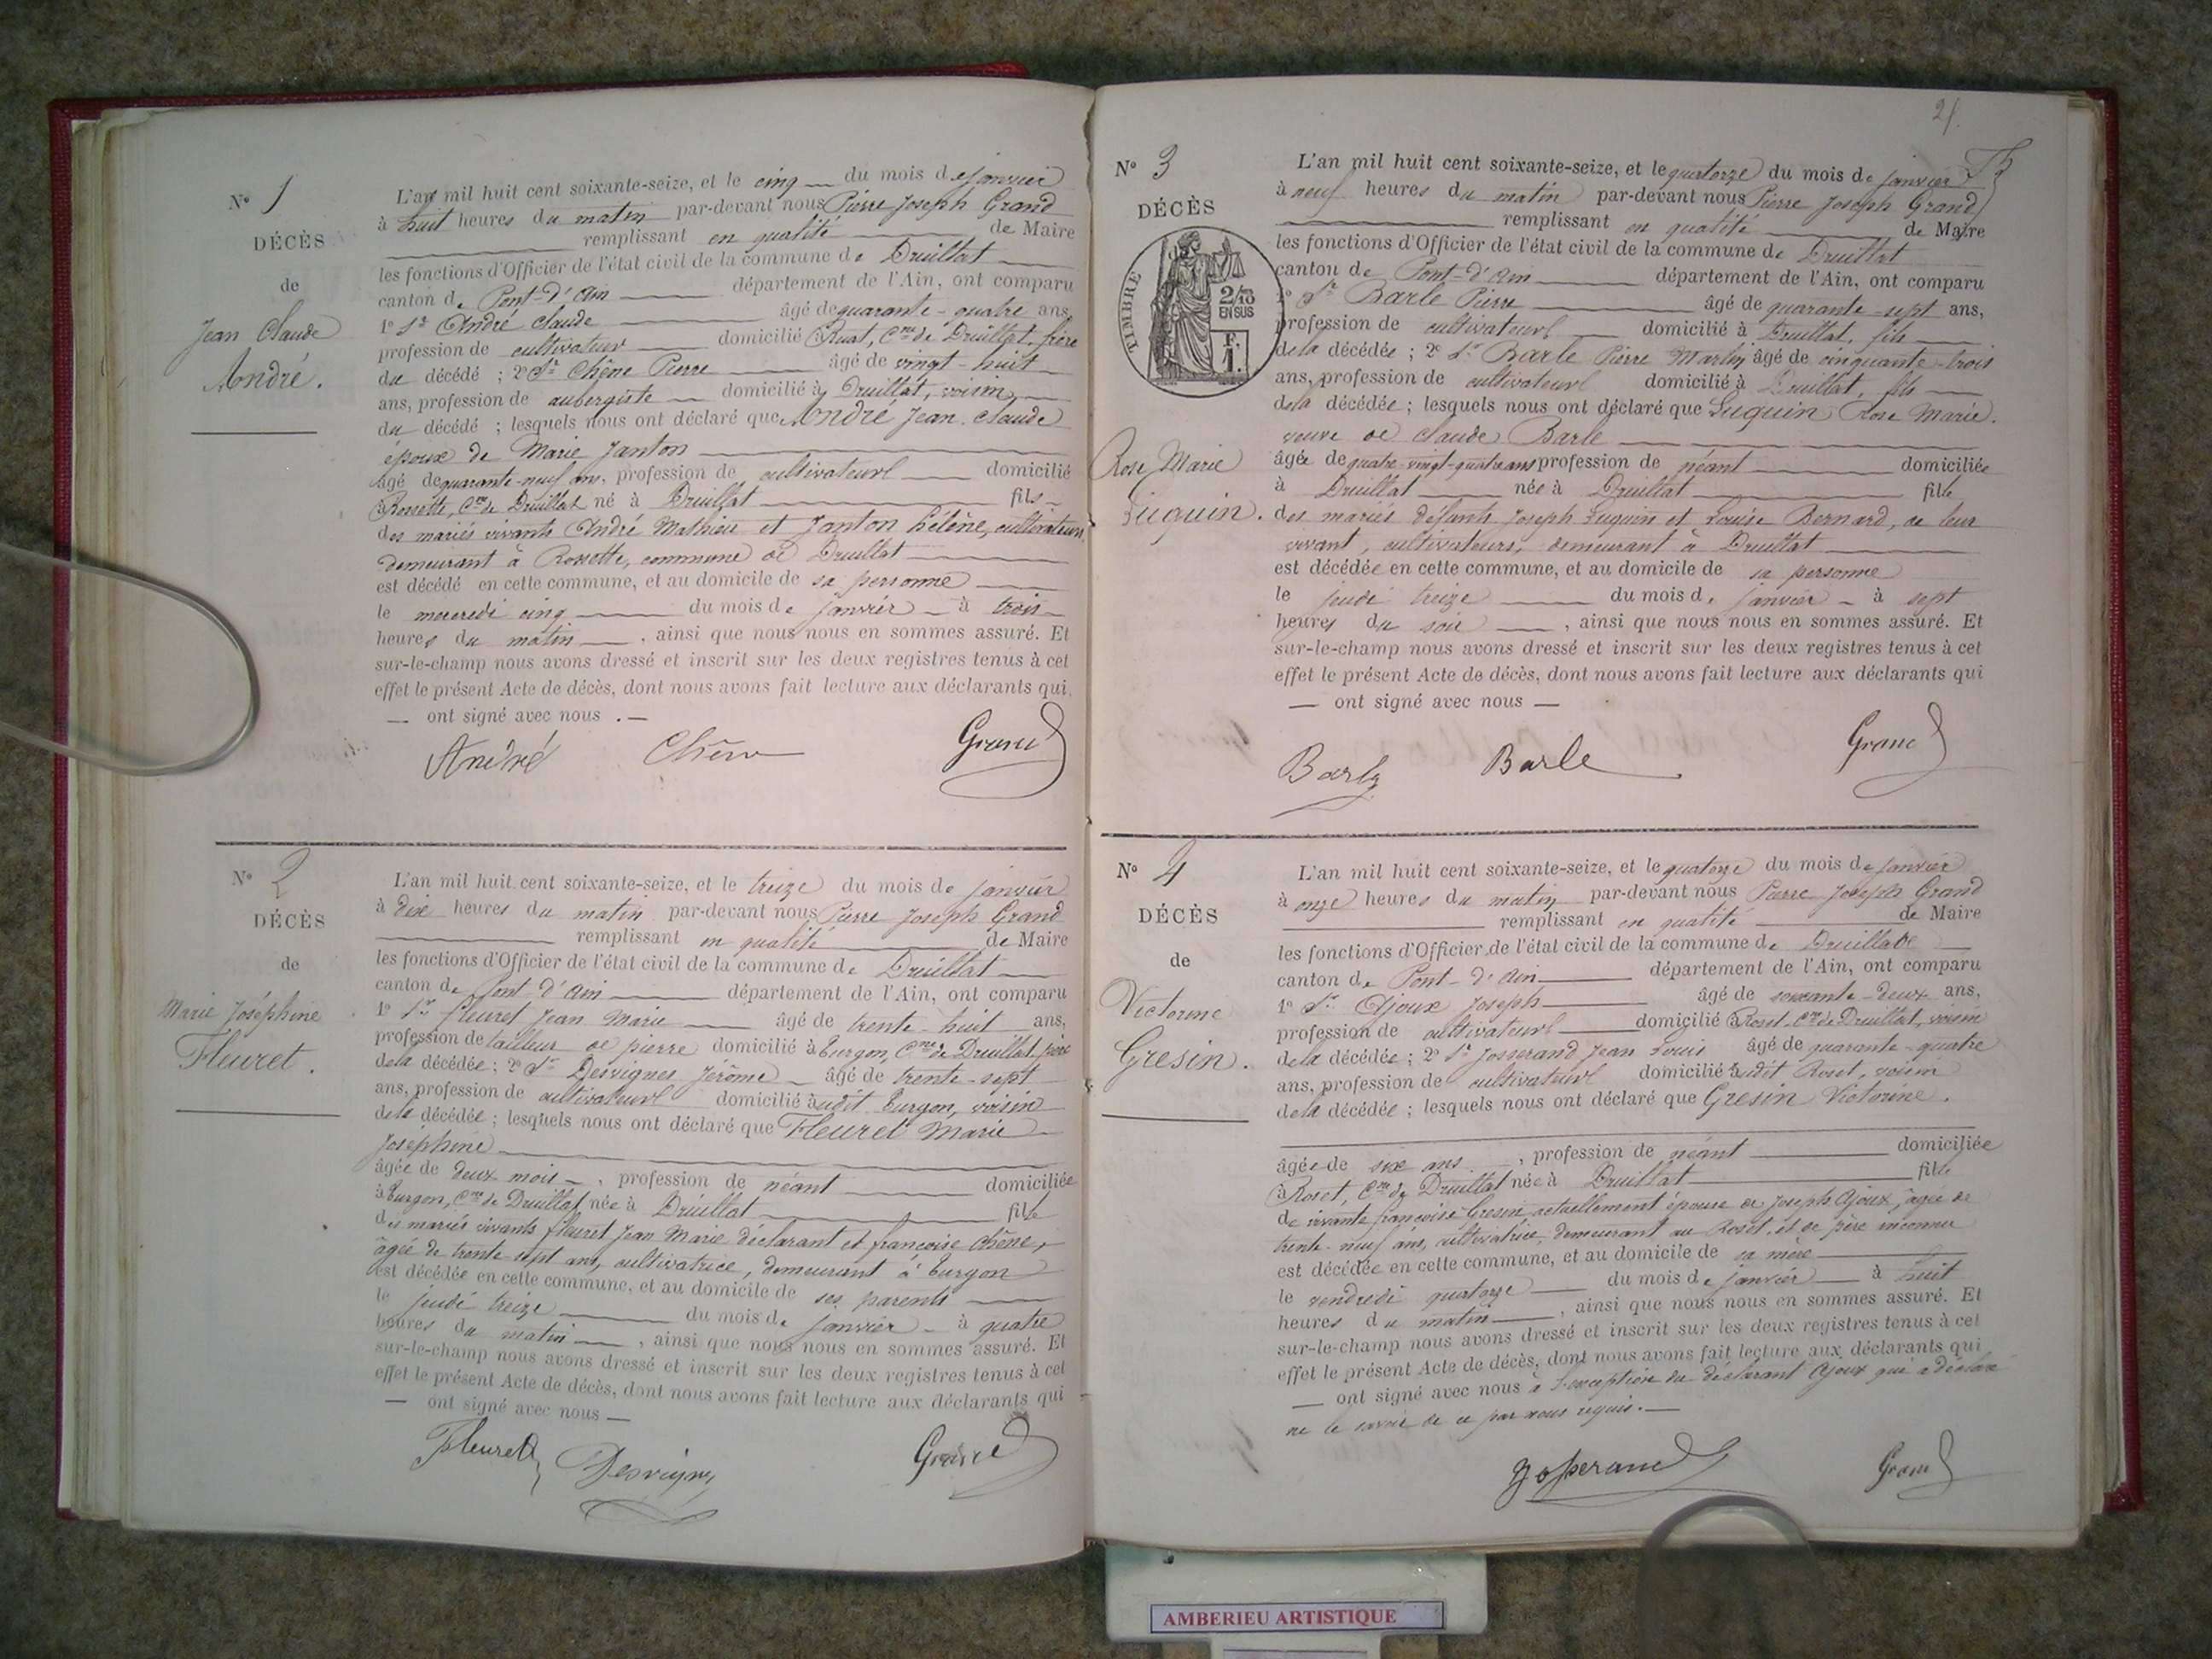 N° 1
DÉCÈS
de
Jean Claude
André.
L'an mil huit cent soixante-seize, et le cinq du mois de janvier
à huit heures du matin par-devant nous Pierre Joseph Grand
remplissant en qualité de Maire
les fonctions d'Officier de l'état civil de la commune de Druillat
canton de Pont-d'Ain département de l'Ain, ont comparu
1° Sr André Claude âgé de quarante-quatre ans,
profession de cultivateur domicilié à Ruat, Cne de Druillat, frère
du décédé ; 2° Sr Chêne Pierre âgé de vingt-huit
ans, profession de aubergiste domicilié à Druillat, voisin
du décédé ; lesquels nous ont déclaré que André Jean Claude
époux de Marie Janton
âgé de quarante-neuf ans, profession de cultivateur domicilié
à Rossette, Cne de Druillat né à Druillat fils
des mariés vivants André Mathieu et Janton hélène, cultivateurs,
demeurant à Rossette, commune de Druillat
est décédé en cette commune, et au domicile de sa personne
le mercredi cinq du mois de janvier à trois
heures du matin, ainsi que nous nous en sommes assuré. Et
sur-le-champ nous avons dressé et inscrit sur les deux registres tenus à cet
effet le présent Acte de décès, dont nous avons fait lecture aux déclarants qui
ont signé avec nous.
André Chêne Grand
N° 2
DÉCÈS
de
Marie Joséphine
Fleuret.
L'an mil huit cent soixante-seize, et le treize du mois de janvier
à dix heures du matin par-devant nous Pierre Joseph Grand
remplissant en qualité de Maire
les fonctions d'Officier de l'état civil de la commune de Druillat
canton de Pont d'Ain département de l'Ain, ont comparu
1° Sr Fleuret Jean Marie âgé de trente-huit ans,
profession de tailleur de pierre domicilié à Turgon, Cne de Druillat, père
de la décédée ; 2° Sr Desvignes Jérôme âgé de trente-sept
ans, profession de cultivateur domicilié audit Turgon, voisin
de la décédée ; lesquels nous ont déclaré que Fleuret Marie
Joséphine
âgée de deux mois, profession de néant domiciliée
à Turgon, Cne de Druillat née à Druillat fille
des mariés vivants fleuret Jean Marie déclarant et françoise Chêne,
âgée de trente-sept ans, cultivatrice, demeurant à Turgon
est décédée en cette commune, et au domicile de ses parents
le jeudi treize du mois de janvier à quatre
heures du matin, ainsi que nous nous en sommes assuré. Et
sur-le-champ nous avons dressé et inscrit sur les deux registres tenus à cet
effet le présent Acte de décès, dont nous avons fait lecture aux déclarants qui
ont signé avec nous
Fleuret Desvignes Grand
21.
N° 3
DÉCÈS
TIMBRE
2/10
EN SUS
F.
1.
Rose Marie
Luguin.
L'an mil huit cent soixante-seize, et le quatorze du mois de janvier
à neuf heures du matin par-devant nous Pierre Joseph Grand
remplissant en qualité de Maire
les fonctions d'Officier de l'état civil de la commune de Druillat
canton de Pont-d'Ain département de l'Ain, ont comparu
1° Sr Barle Pierre âgé de quarante-sept ans,
profession de cultivateur domicilié à Druillat, fils
de la décédée ; 2° Sr Barle Pierre Martin âgé de cinquante-trois
ans, profession de cultivateur domicilié à Druillat, fils
de la décédée ; lesquels nous ont déclaré que Luguin Rose Marie.
veuve de Claude Barle
âgée de quatre-vingt-quatre ans profession de néant domiciliée
à Druillat née à Druillat fille
des mariés défunts Joseph Luguin et Louise Bernard, de leur
vivant, cultivateurs, demeurant à Druillat
est décédée en cette commune, et au domicile de sa personne
le jeudi treize du mois de janvier à sept
heures du soir, ainsi que nous nous en sommes assuré. Et
sur-le-champ nous avons dressé et inscrit sur les deux registres tenus à cet
effet le présent Acte de décès, dont nous avons fait lecture aux déclarants qui
ont signé avec nous
Barle Barle Grand
N° 4
DÉCÈS
de
Victorine
Gresin.
L'an mil huit cent soixante-seize, et le quatorze du mois de janvier
à onze heures du matin par-devant nous Pierre Joseph Grand
remplissant en qualité de Maire
les fonctions d'Officier de l'état civil de la commune de Druillat
canton de Pont-d'Ain département de l'Ain, ont comparu
1° Sr Ajoux Joseph âgé de soixante-deux ans,
profession de cultivateur domicilié à Roset, Cne de Druillat, voisin
de la décédée ; 2° Sr Josserand Jean Louis âgé de quarante-quatre
ans, profession de cultivateur domicilié audit Roset, voisin
de la décédée ; lesquels nous ont déclaré que Gresin Victorine.
âgée de six ans, profession de néant domiciliée
à Roset, Cne de Druillat née à Druillat fille
de vivante françoise Gresin actuellement épouse de Joseph Ajoux, âgée de
trente-neuf ans, cultivatrice, demeurant au Roset, et de père inconnu
est décédée en cette commune, et au domicile de sa mère
le vendredi quatorze du mois de janvier à huit
heures du matin, ainsi que nous nous en sommes assuré. Et
sur-le-champ nous avons dressé et inscrit sur les deux registres tenus à cet
effet le présent Acte de décès, dont nous avons fait lecture aux déclarants qui
ont signé avec nous à l'exception du déclarant Ajoux qui a déclaré
ne le savoir de ce par nous requis.
Josserand Grand
AMBERIEU ARTISTIQUE